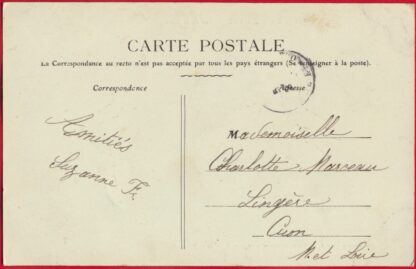 CARTE POSTALE
La Correspondance au recto n'est pas acceptée par tous les pays étrangers (Se renseigner à la poste).
Correspondance
Adresse
Amitiés
Suzanne F.
Mademoiselle
Charlotte Marceau
Lingère
Cuon
M. et Loire